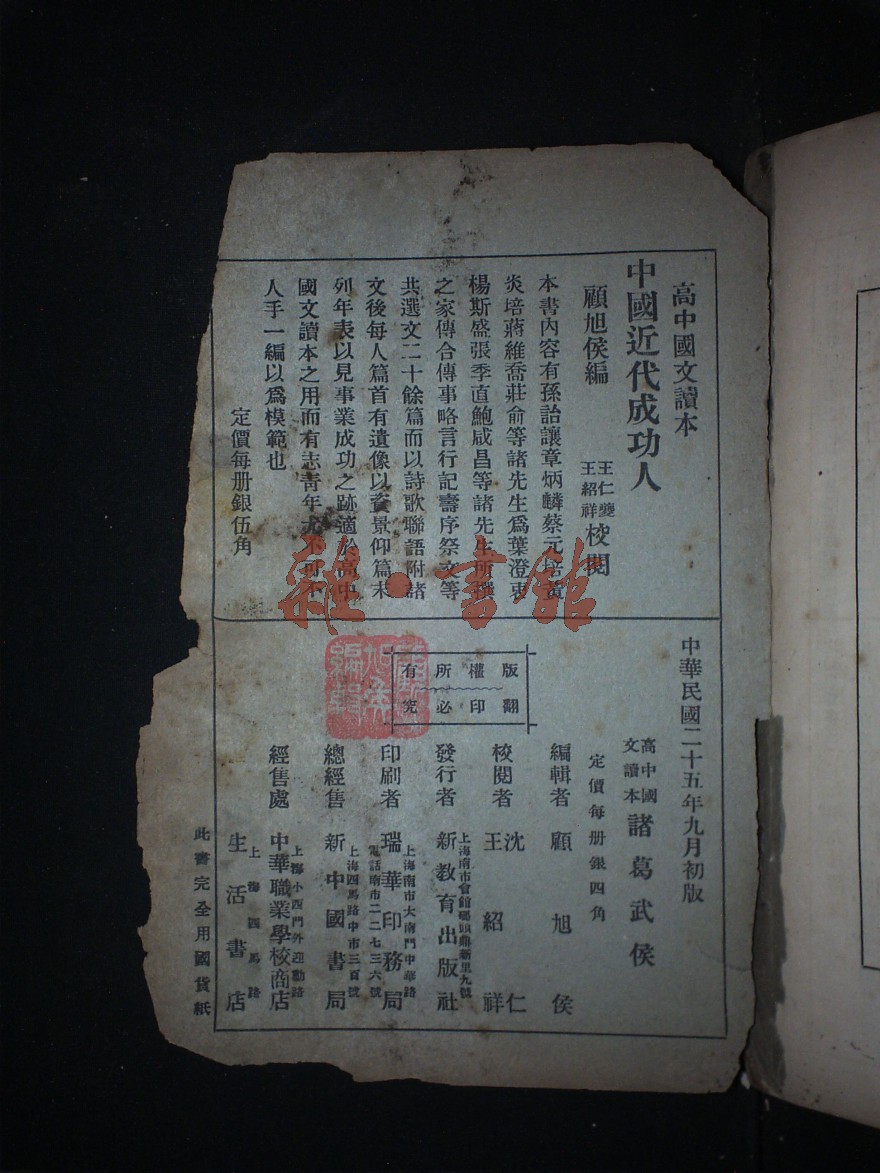 高中國文讀本
中國近代成功人
顧旭侯編
王仁夔
王紹祥
校閱
本書內容有孫詒讓章炳麟蔡元培黃
炎培蔣維喬莊俞等諸先生爲葉澄衷
楊斯盛張季直鮑咸昌等諸先生所撰
之家傳合傳事略言行記壽序祭文等
共選文二十餘篇而以詩歌聯語附諸
文後每人篇首有遺像以資景仰篇末
列年表以見事業成功之跡適於高中
國文讀本之用而有志靑年尤不可不
人手一編以爲模範也
定價每册銀伍角
雜·書館
中華民國二十五年九月初版
高中國
文讀本
諸葛武侯
定價每册銀四角
版權所有
翻印必究
編輯者 顧旭侯
校閱者
沈仁
王紹祥
發行者 新教育出版社
上海南市會館碼頭鼎新里九號
印刷者 瑞華印務局
上海南市大南門中華路
電話南市二二七三六號
總經售 新中國書局
上海四馬路中市三百號
經售處
中華職業學校商店
上海小西門外迎勳路
生活書店
上海四馬路
此書完全用國貨紙